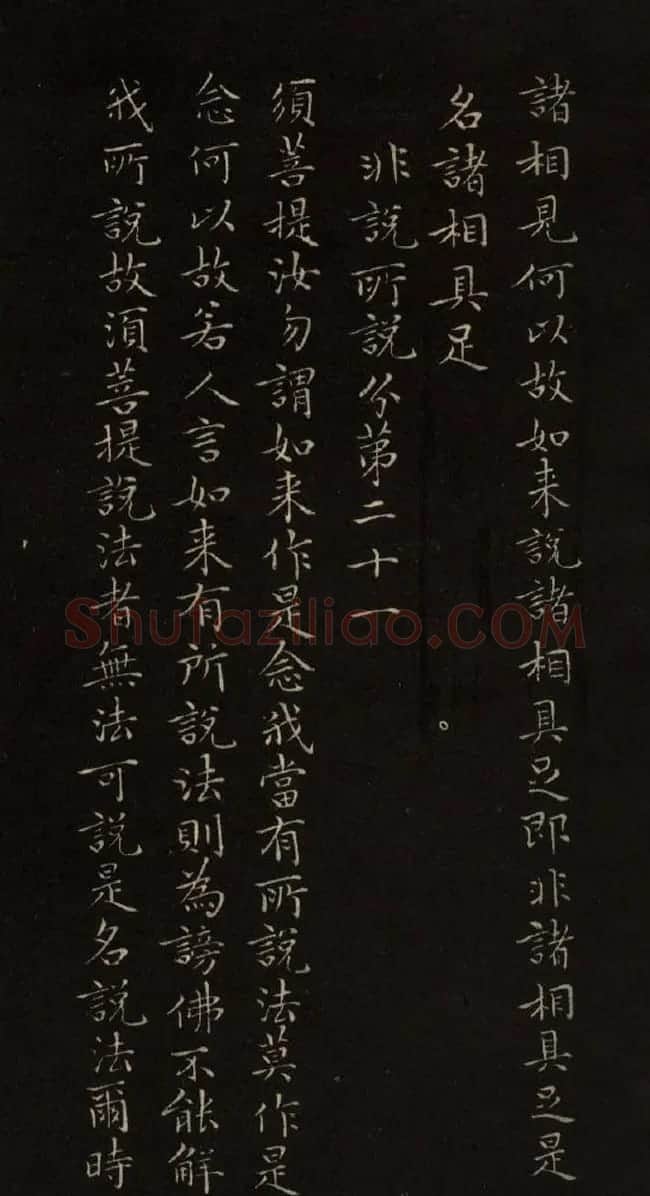 諸相見何以故如来說諸相具足即非諸相具足是
名諸相具足
非說所說分第二十一
須菩提汝勿謂如来作是念我當有所說法莫作是
念何以故若人言如来有所說法則為謗佛不能解
我所說故須菩提說法者無法可說是名說法爾時
Shufaziliao.COM